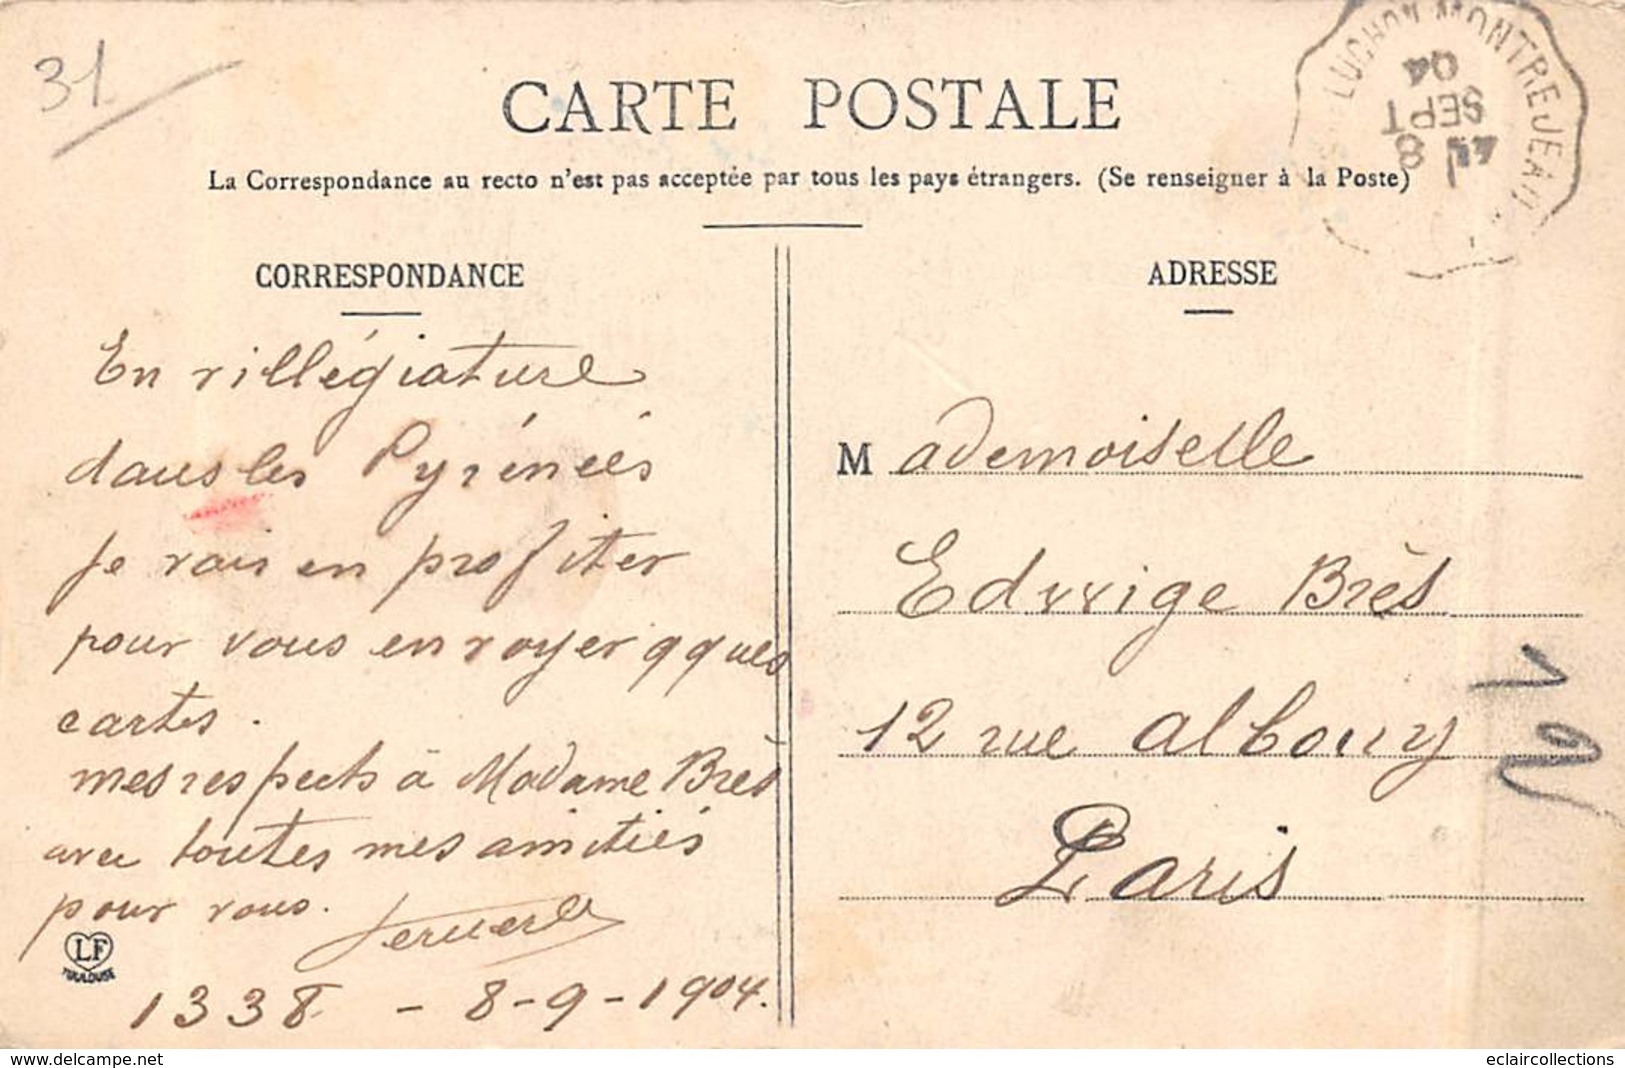 31
CARTE POSTALE
La Correspondance au recto n'est pas acceptée par tous les pays étrangers. (Se renseigner à la Poste)
LUCHON MONTREJEAU
8
SEPT
04
CORRESPONDANCE
En villégiature
dans les Pyrénées
Je vais en profiter
pour vous envoyer qques
cartes.
mes respects à Madame Brès
avec toutes mes amitiés
pour vous.
LF
TOULOUSE
1338 - 8-9-1904.
ADRESSE
Mademoiselle
Edwige Brès
12 rue Albouy
Paris
delcampe.net
eclaircollections